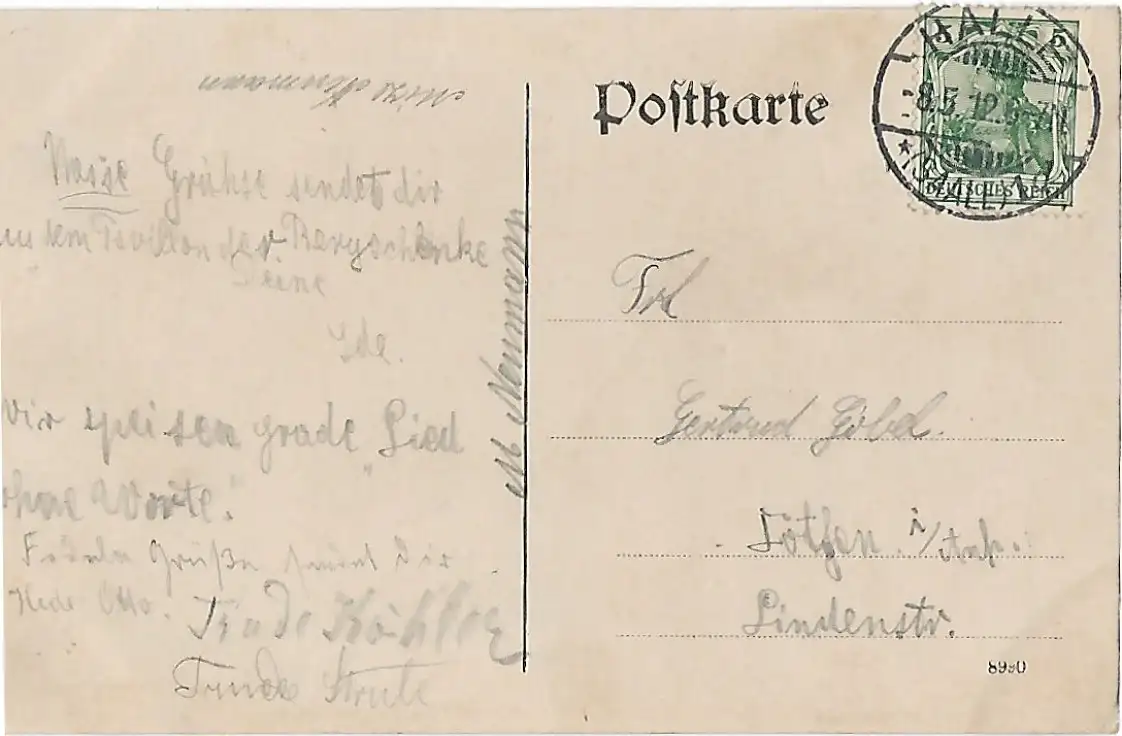 Postkarte
HALLE
-8.5.12.
* (SAALE)
5 5
DEUTSCHES REICH
Neumann
Nasse Grühse sendet dir
aus dem Pavillon der Bergschenke
Deine
Ide.
Wir speisen grade „Lied
ohne Worte".
Grüße sendet Dir
Hede Otto.
Trude Köhler
Trude
M Neumann
Frl
Gertrud Göbel.
Cöthen i/Anh.
Lindenstr.
8990